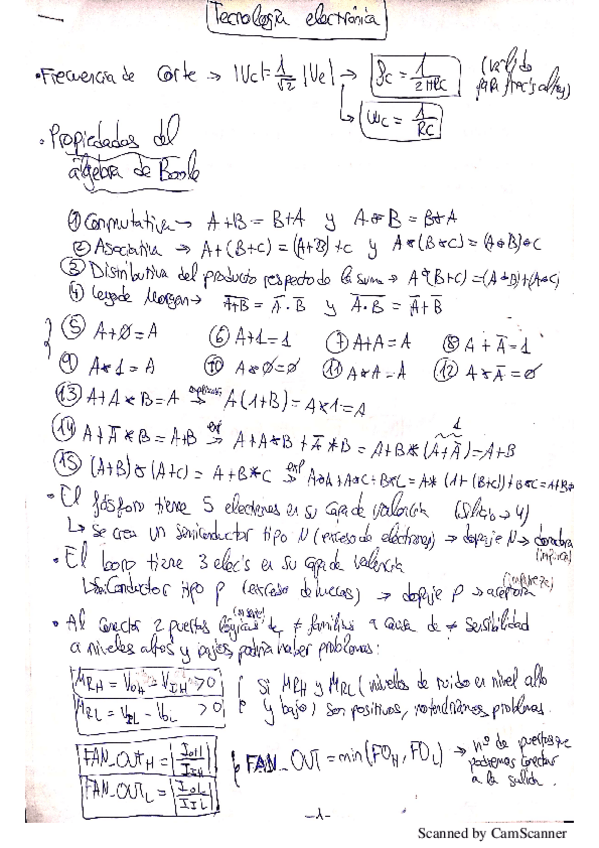 Tecnología electrónica
• Frecuencia de corte → |Vc| = 1/√2 |Ve| → fc = 1/2πRC (válido para frec's altas)
↳ ωc = 1/RC
• Propiedades del
álgebra de Boole
① Conmutativa → A+B = B+A y A*B = B*A
② Asociativa → A+(B+C) = (A+B)+C y A*(B*C) = (A*B)*C
③ Distributiva del producto respecto de la suma → A*(B+C) = (A*B)+(A*C)
④ Leyes de Morgan → A̅+̅B̅ = A̅·B̅ y A̅·̅B̅ = A̅+B̅
⑤ A+0=A ⑥ A+1=1 ⑦ A+A=A ⑧ A+A̅=1
⑨ A*1=A ⑩ A*0=0 ⑪ A*A=A ⑫ A*A̅=0
⑬ A+A*B=A → A(1+B)=A*1=A
⑭ A+A̅*B=A+B exp→ A+A*B+A̅*B = A+B*(A+A̅)=A+B
1
⑮ (A+B)*(A+C) = A+B*C exp→ A*A+A*C+B*A+B*C = A*(1+(B+C))+B*C=A+B*C
• El fósforo tiene 5 electrones en su capa de valencia (Silicio → 4)
↳ Se crea un semiconductor tipo N (exceso de electrones) → dopaje N → donadora
• El boro tiene 3 elec's en su capa de valencia
↳ Semiconductor tipo P (exceso de huecos) → dopaje P → aceptora (impureza)
• Al conectar 2 puertas lógicas de ≠ familias a causa de ≠ sensibilidad
a niveles altos y bajos, podría haber problemas:
MRH = VOH − VIH > 0 Si MRH y MRL (niveles de ruido en nivel alto
MRL = VIL − VOL > 0 y bajo) son positivos, no tendríamos problemas.
FAN_OUTH = |IOH/IIH| FAN_OUT = min(FOH, FOL) → nº de puertas que podríamos conectar a la salida.
FAN_OUTL = |IOL/IIL|
-1-
Scanned by CamScanner